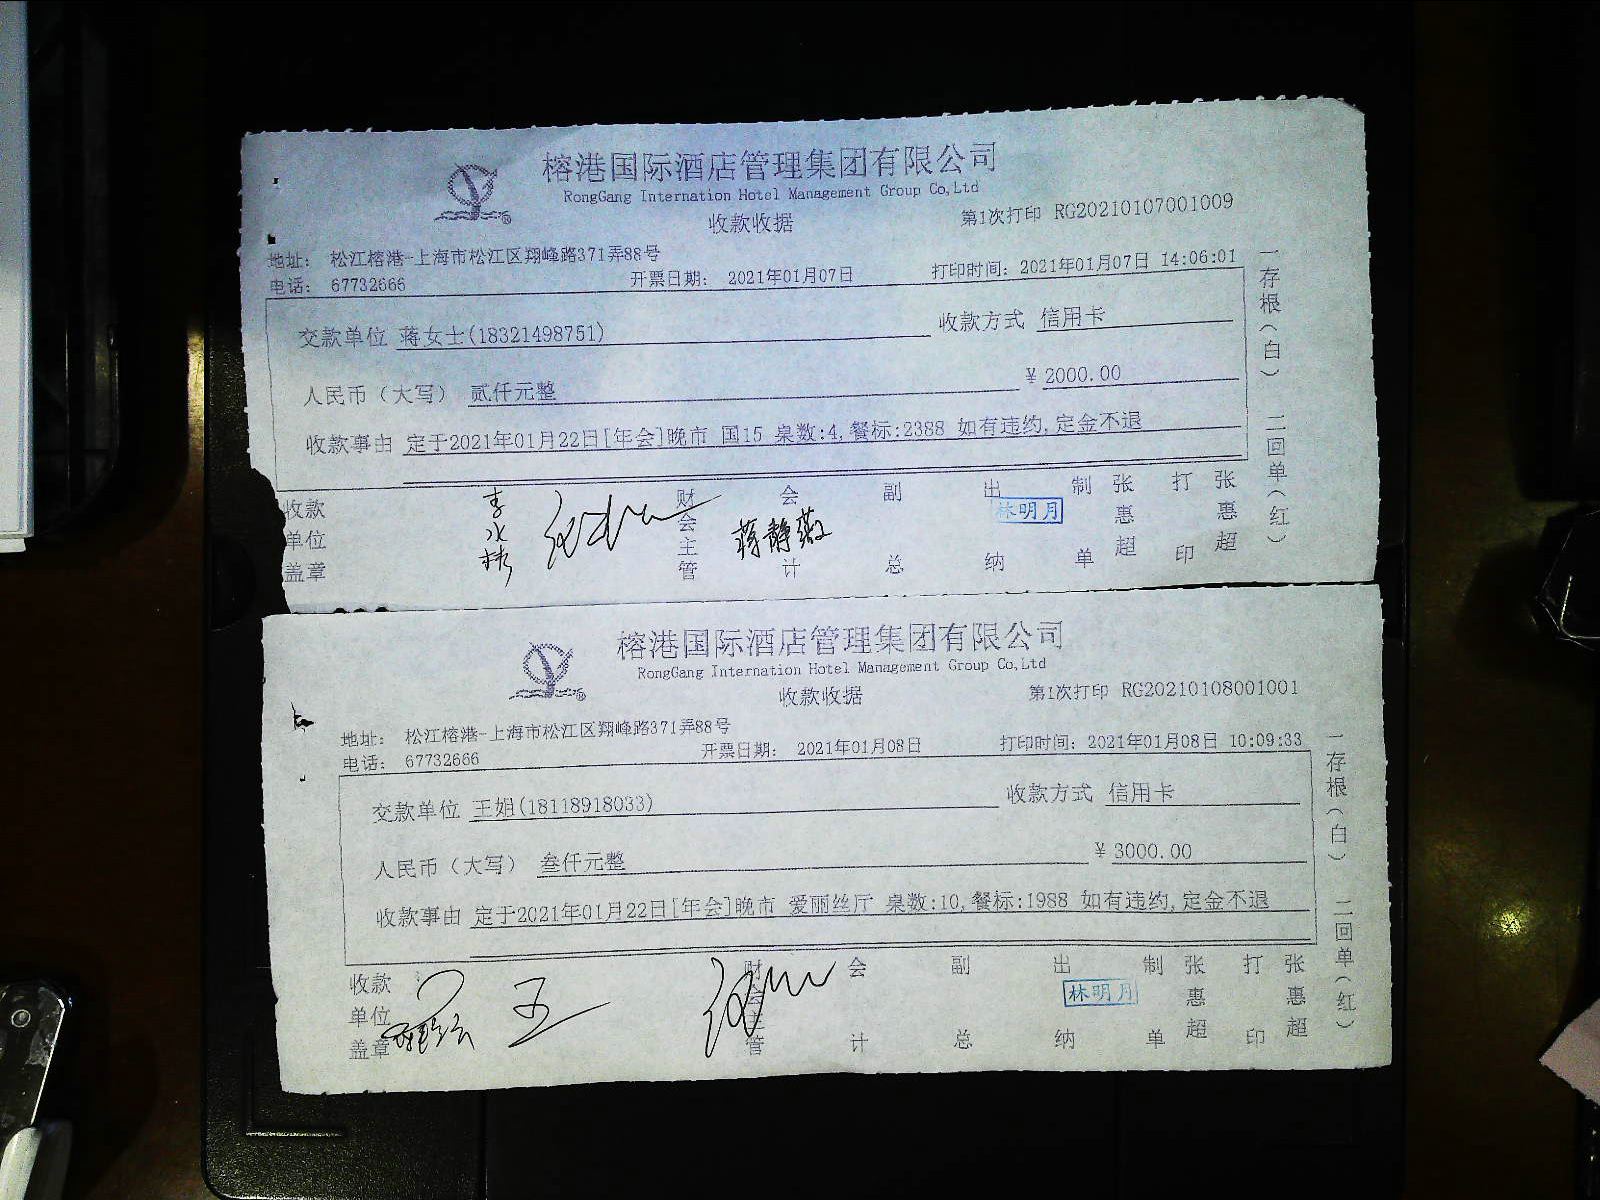 榕港国际酒店管理集团有限公司
RongGang Internation Hotel Management Group Co,Ltd
收款收据
第1次打印 RG20210107001009
地址： 松江榕港-上海市松江区翔峰路371弄88号
电话： 67732666 开票日期： 2021年01月07日 打印时间：2021年01月07日 14:06:01
交款单位 蒋女士(18321498751) 收款方式 信用卡
人民币（大写） 贰仟元整 ¥ 2000.00
收款事由 定于2021年01月22日[年会]晚市 国15 桌数:4,餐标:2388 如有违约,定金不退
收款单位盖章 李水彬 财会主管 会计 蒋静薇 副总 出纳 林明月 制单 张惠超 打印 张惠超
一存根（白） 二回单（红）
榕港国际酒店管理集团有限公司
RongGang Internation Hotel Management Group Co,Ltd
收款收据
第1次打印 RG20210108001001
地址： 松江榕港-上海市松江区翔峰路371弄88号
电话： 67732666 开票日期： 2021年01月08日 打印时间：2021年01月08日 10:09:33
交款单位 王姐(18118918033) 收款方式 信用卡
人民币（大写） 叁仟元整 ¥ 3000.00
收款事由 定于2021年01月22日[年会]晚市 爱丽丝厅 桌数:10,餐标:1988 如有违约,定金不退
收款单位盖章 财会主管 会计 副总 出纳 林明月 制单 张惠超 打印 张惠超
一存根（白） 二回单（红）